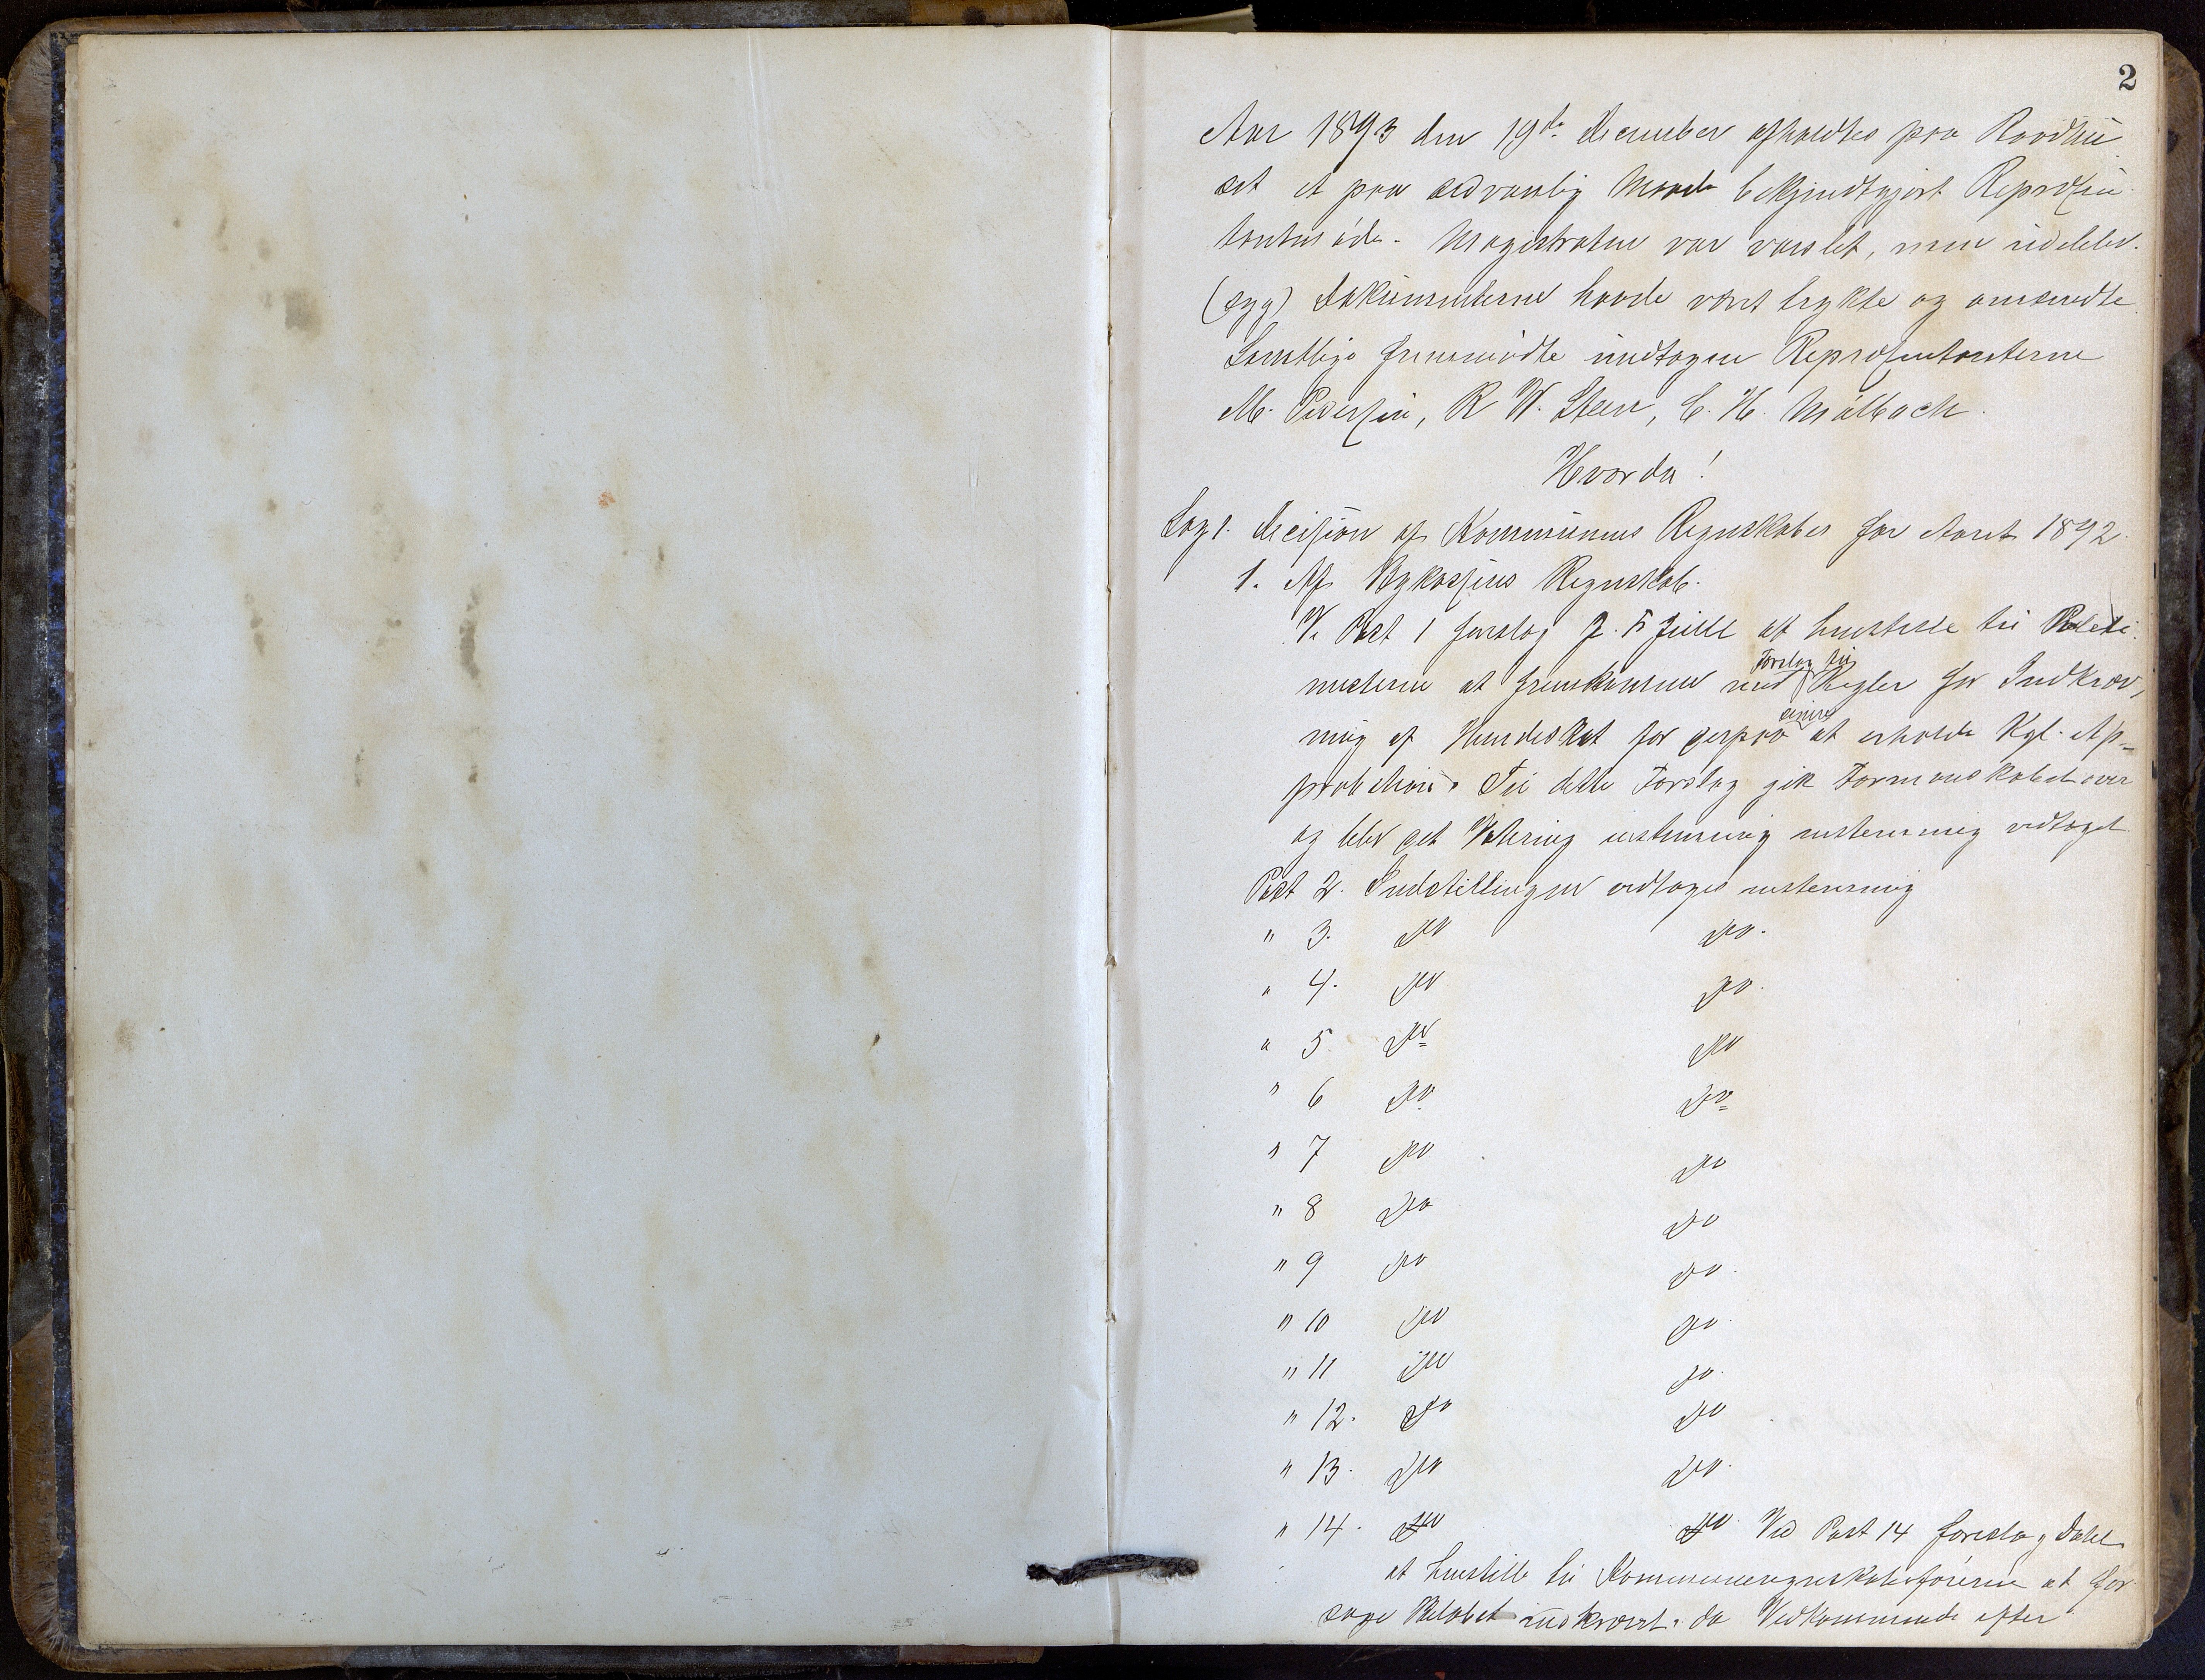 2
Aar 1893 den 19de December afholdtes paa Raadhu-
set et paa sedvanlig Maade bekjendtgjort Repræsen-
tantmøde. Magistraten var varslet, men udeblev.
(syg) Dokumenterne havde været trykte og omsendte.
Samtlige fremmødte undtagen Repræsentanterne
M. Pedersen, R W. Steen, C. H. Mølbach.
Hvorda!
Sag 1. Decision af Kommunens Regnskaber for Aaret 1892.
1. Af Bykassens Regnskab.
Ve Post 1 foreslog J. F. at henstille til
misterne at fremkomme med Forslag til Regler for Indkræv-
ning af Hundeskat for derpaa senere at erholde Kgl. Ap-
probation. Til dette Forslag gik Formandskabet over
og blev det Votering enstemmig vedtaget
Post 2. Indstillingen vedtages enstemmig
" 3. Do Do.
" 4. Do Do.
" 5 Do Do
" 6 Do Do
" 7 Do Do
" 8 Do Do
" 9 Do Do.
" 10 Do Do.
" 11 Do Do.
" 12. Do Do
" 13. Do Do.
" 14. Do Do. Ved Post 14 foreslog Dahl
at henstille til Kommuneregnskabsføreren at for-
søge Beløbet indkrævet, da Vedkommende efter